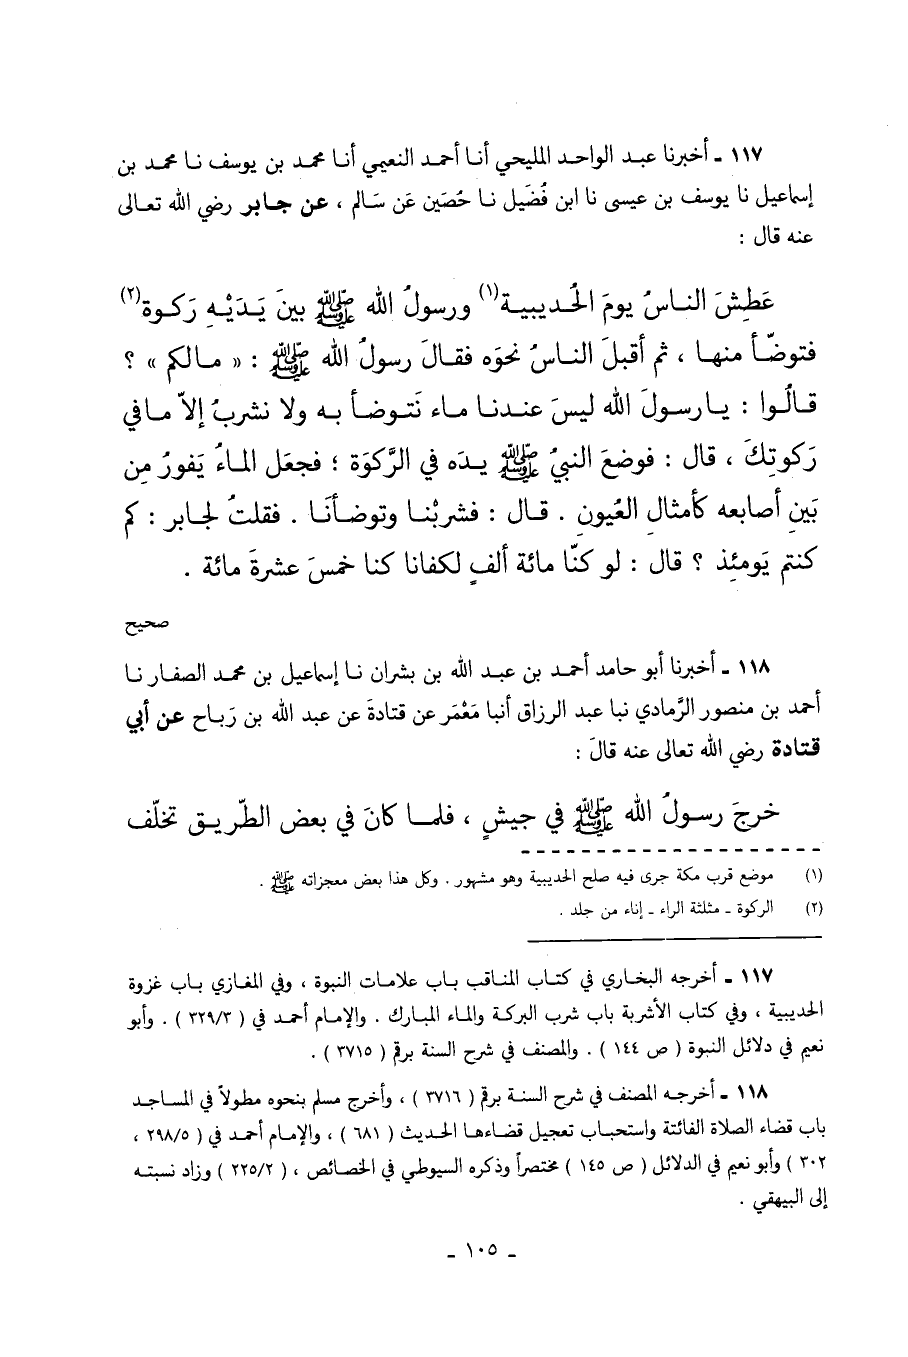 ١١٧ ـ أخبرنا عبد الواحد المليحي أنا أحمد النعيمي أنا محمد بن يوسف نا محمد بن
إسماعيل نا يوسف بن عيسى نا ابن فُضَيل نا حُصَين عَن سَالم ، عن جابر رضي الله تعالى
عنه قال :
عَطِشَ الناسُ يومَ الحُديبية(١) ورسولُ الله ﷺ بينَ يَدَيْهِ رَكوة(٢)
فتوضّأ منها ، ثم أقبلَ الناسُ نحوَه فقالَ رسولُ الله ﷺ : « مالكم » ؟
قالُوا : يارسولَ الله ليسَ عندنا ماء نَتوضأ به ولا نشربُ إلاّ مافي
رَكوتِكَ ، قال : فوضعَ النبيُ ﷺ يدَه في الرَّكوَة ؛ فجعَل الماءُ يَفورُ مِن
بَينِ أصابعه كأمثالِ العُيونِ . قال : فشربْنا وتوضأنَا . فقلتُ لجابر : كم
كنتم يَومئِذ ؟ قال : لو كنّا مائة ألفٍ لكفانا كنا خمسَ عشرةَ مائة .
صحيح
١١٨ ـ أخبرنا أبو حامد أحمد بن عبد الله بن بشران نا إسماعيل بن محمد الصفار نا
أحمد بن منصور الرَّمادي نبا عبد الرزاق أنبا مَعْمَر عن قتادةَ عن عبد الله بن رَباح عن أبي
قتادة رضي الله تعالى عنه قالَ :
خرجَ رسولُ الله ﷺ في جيشٍ ، فلما كانَ في بعض الطّريق تخلّف
(١) موضع قرب مكة جرى فيه صلح الحديبية وهو مشهور . وكل هذا بعض معجزاته ﷺ .
(٢) الركوة ـ مثلثة الراء ـ إناء من جلد .
١١٧ ـ أخرجه البخاري في كتاب المناقب باب علامات النبوة ، وفي المغازي باب غزوة
الحديبية ، وفي كتاب الأشربة باب شرب البركة والماء المبارك . والإمام أحمد في ( ٣٢٩/٣ ) . وأبو
نعيم في دلائل النبوة ( ص ١٤٤ ) . والمصنف في شرح السنة برقم ( ٣٧١٥ ) .
١١٨ ـ أخرجه المصنف في شرح السنة برقم ( ٣٧١٦ ) ، وأخرج مسلم بنحوه مطولاً في المساجد
باب قضاء الصلاة الفائتة واستحباب تعجيل قضاءها الحديث ( ٦٨١ ) ، والإمام أحمد في ( ٢٩٨/٥ ،
٣٠٢ ) وأبو نعيم في الدلائل ( ص ١٤٥ ) مختصراً وذكره السيوطي في الخصائص ، ( ٢٢٥/٢ ) وزاد نسبته
إلى البيهقي .
ـ ١٠٥ ـ